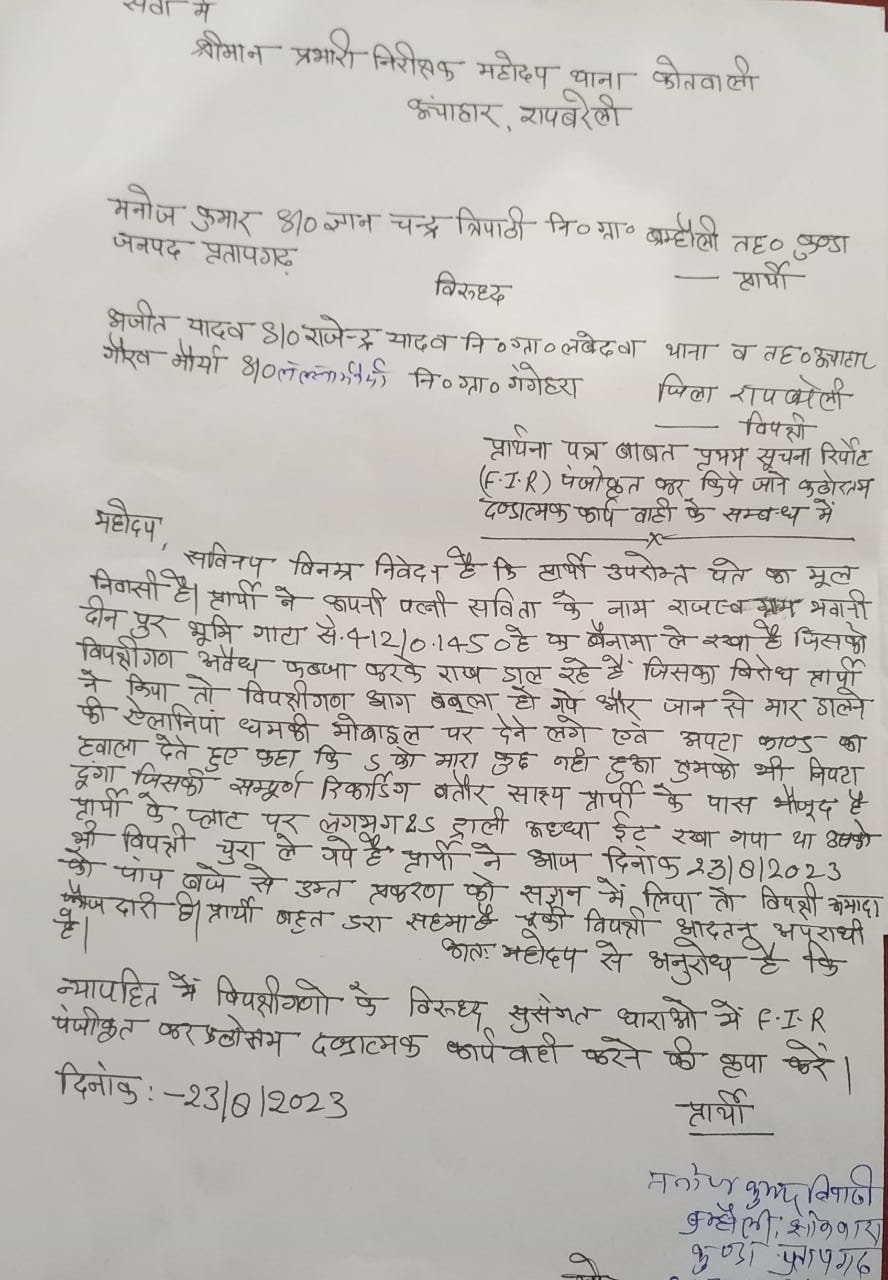 सेवा में
श्रीमान प्रभारी निरीक्षक महोदय थाना कोतवाली
ऊंचाहार, रायबरेली
मनोज कुमार S/O ज्ञान चन्द्र त्रिपाठी नि० ग्रा० ब्रम्हौली तह० कुण्डा
जनपद प्रतापगढ़
— प्रार्थी
विरुध्द
अजीत यादव S/O राजेन्द्र यादव नि० ग्रा० लबेदवा थाना व तह० ऊंचाहार
गौरव मौर्या S/O नि० ग्रा० गंगेहरा जिला रायबरेली
— विपक्षी
प्रार्थना पत्र बाबत प्रथम सूचना रिर्पोट
(F.I.R) पंजीकृत कर किये जाने कठोरतम
दण्डात्मक कार्य वाही के सम्बन्ध में
महोदय,
सविनय विनम्र निवेदन है कि प्रार्थी उपरोक्त पते का मूल
निवासी है। प्रार्थी ने अपनी पत्नी सविता के नाम राजस्व ग्राम भवानी
दीन पुर भूमि गाटा सं. 412/0.1450 हे का बैनामा ले रखा है जिसको
विपक्षीगण अवैध कब्जा करके राख डाल रहे हैं जिसका विरोध प्रार्थी
ने किया तो विपक्षीगण आग बबूला हो गये और जान से मार डालने
की ऐलानियां धमकी मोबाइल पर देने लगे एवं अपटा काण्ड का
हवाला देते हुए कहा कि 5 को मारा कुछ नही हुआ तुमको भी निपटा
दूंगा जिसकी सम्पूर्ण रिकार्डिंग बतौर साक्ष्य प्रार्थी के पास मौजूद है
प्रार्थी के प्लाट पर लगभग 25 ट्राली अध्धा ईट रखा गया था उसको
भी विपक्षी चुरा ले गये है प्रार्थी ने आज दिनांक 23/8/2023
को पांच बजे से उक्त प्रकरण को सज्ञान में लिया तो विपक्षी अमादा
फौजदारी है। प्रार्थी बहुत डरा सहमा है चूकी विपक्षी आदतन अपराधी
है।
अतः महोदय से अनुरोध है कि
न्यायहित में विपक्षीगणो के विरुध्द सुसंगत धाराओ में F.I.R
पंजीकृत कर दण्डात्मक कार्य वाही करने की कृपा करें।
दिनांक :- 23/8/2023
प्रार्थी
मनोज कुमार त्रिपाठी
ब्रम्हौली,
कुण्डा प्रतापगढ